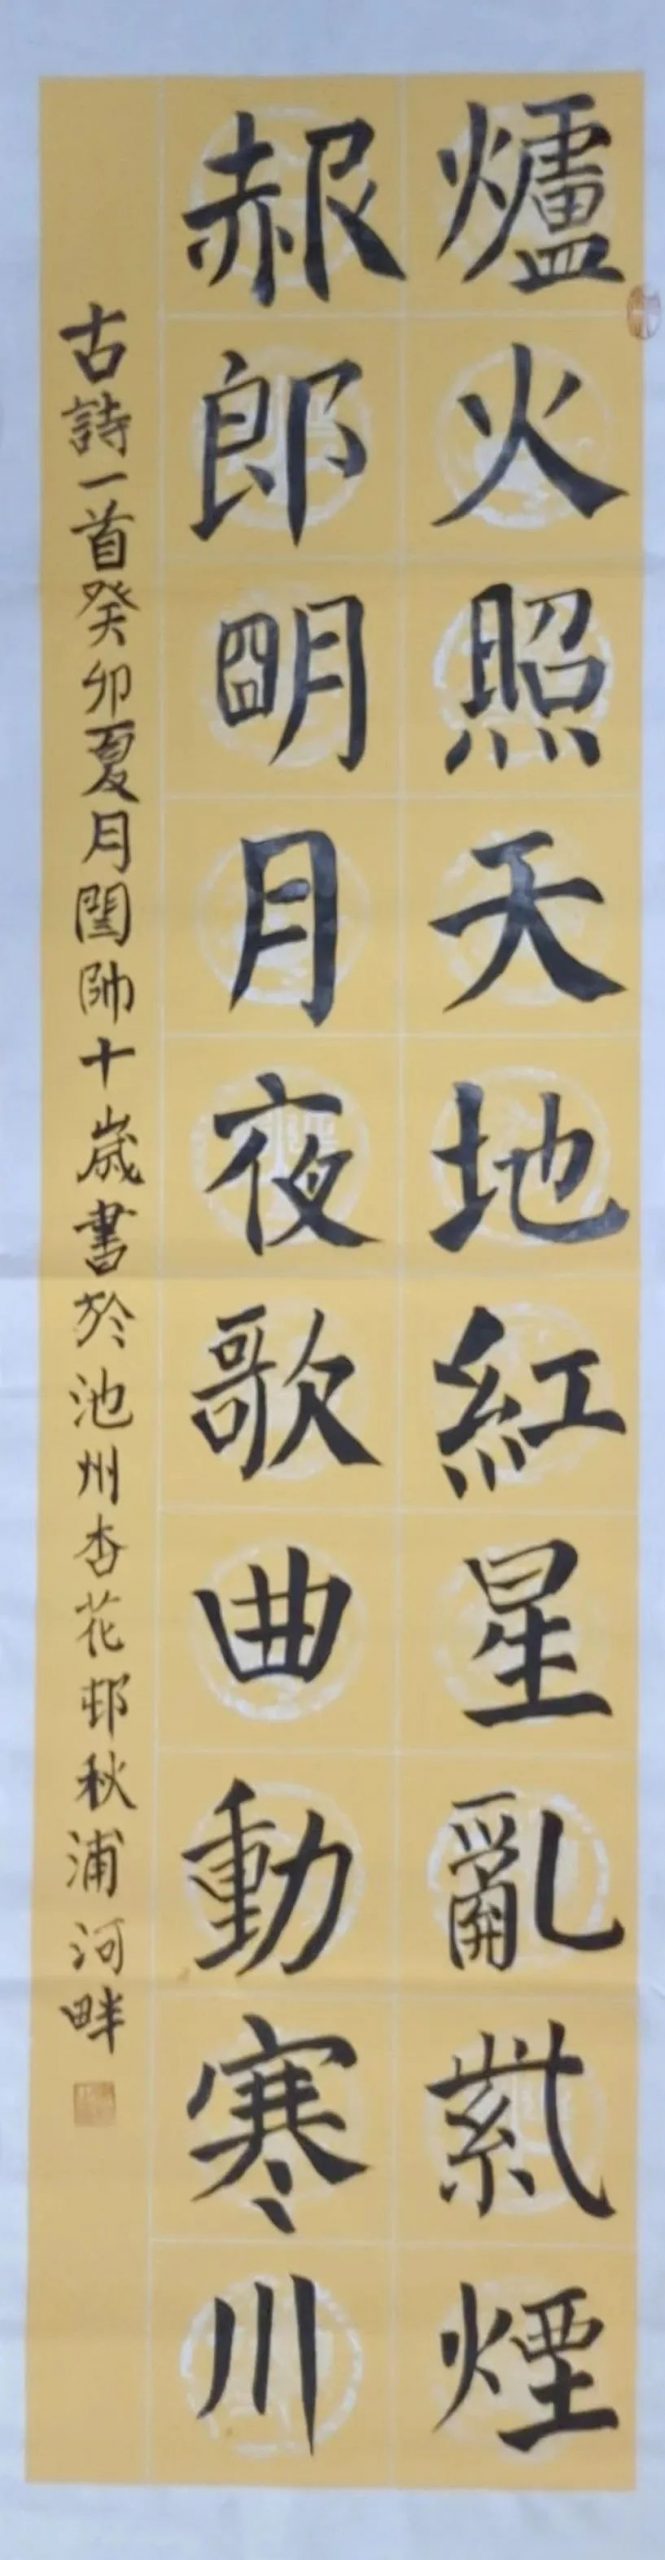 爐火照天地紅星亂紫煙
赧郎明月夜歌曲動寒川
古詩一首癸卯夏月閨帥十歲書於池州杏花邨秋浦河畔